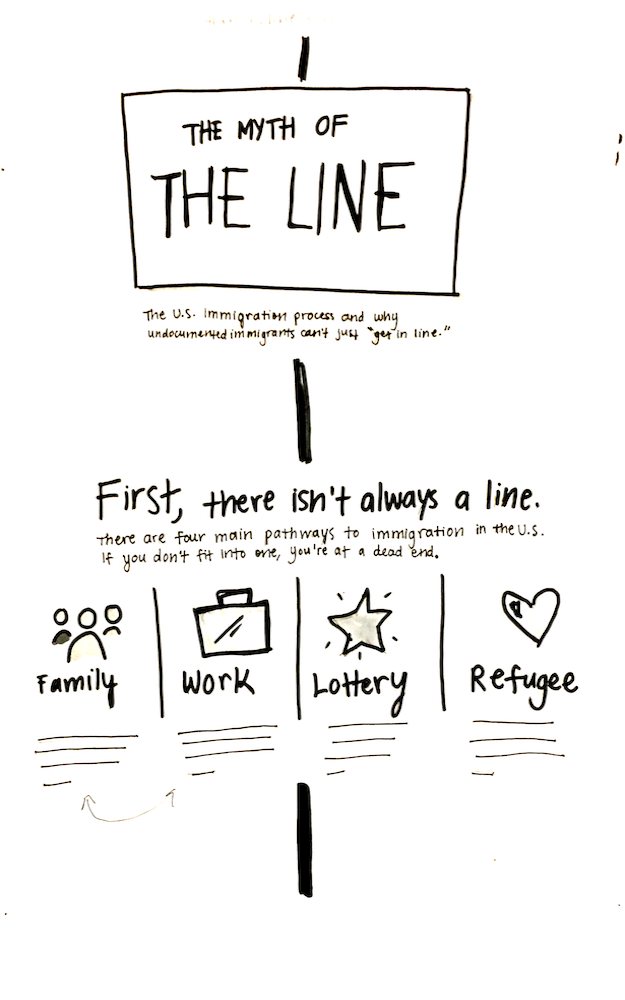 THE MYTH OF
THE LINE
The U.S. immigration process and why
undocumented immigrants can't just "get in line."
First, there isn't always a line.
There are four main pathways to immigration in the U.S.
If you don't fit into one, you're at a dead end.
Family
Work
Lottery
Refugee